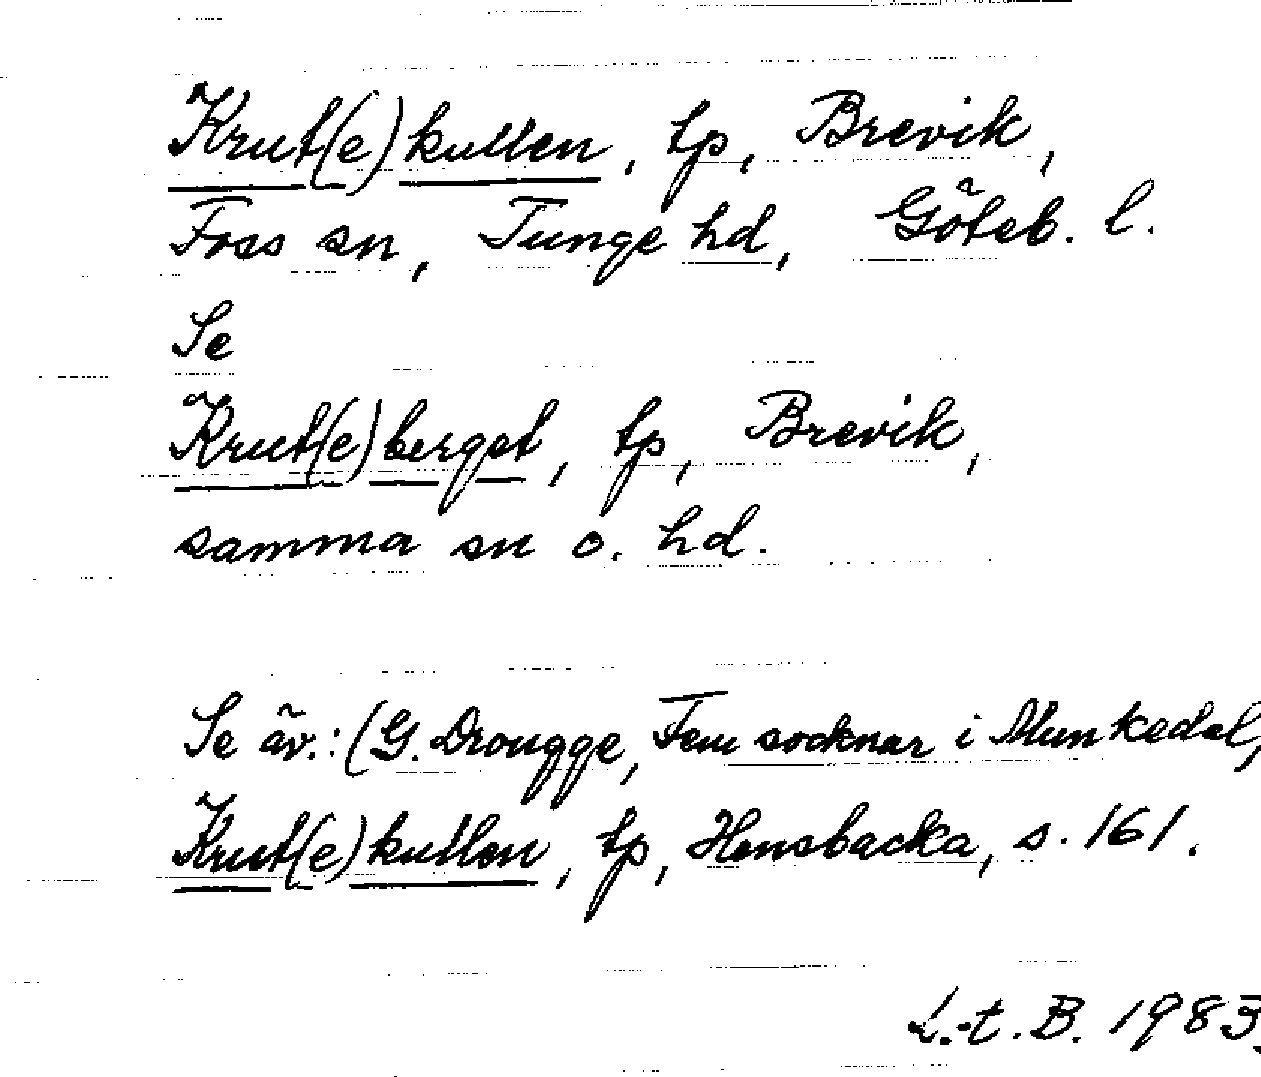 Krut(e)kullen, tp, Brevik,
Foss sn, Tunge hd, Göteb. l.
Se
Krut(e)berget, tp, Brevik,
samma sn o. hd.
Se äv.: (G. Drougge, Fem socknar i Munkedal,
Krut(e)kullen, tp, Hensbacka, s. 161.
L.-t. B. 1983.